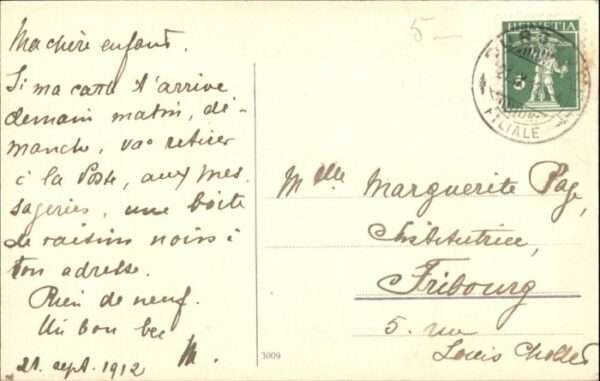 Ma chère enfant.
Si ma carte t'arrive
demain matin, di-
manche, va retirer
à la Poste, aux mes-
sageries, une boîte
de raisins noirs à
ton adresse.
Rien de neuf.
Un bon bec
M.
21. sept. 1912
5-
HELVETIA
5
FILIALE
Mlle Marguerite Page,
Institutrice,
Fribourg
5. rue
Louis Chollet
3009